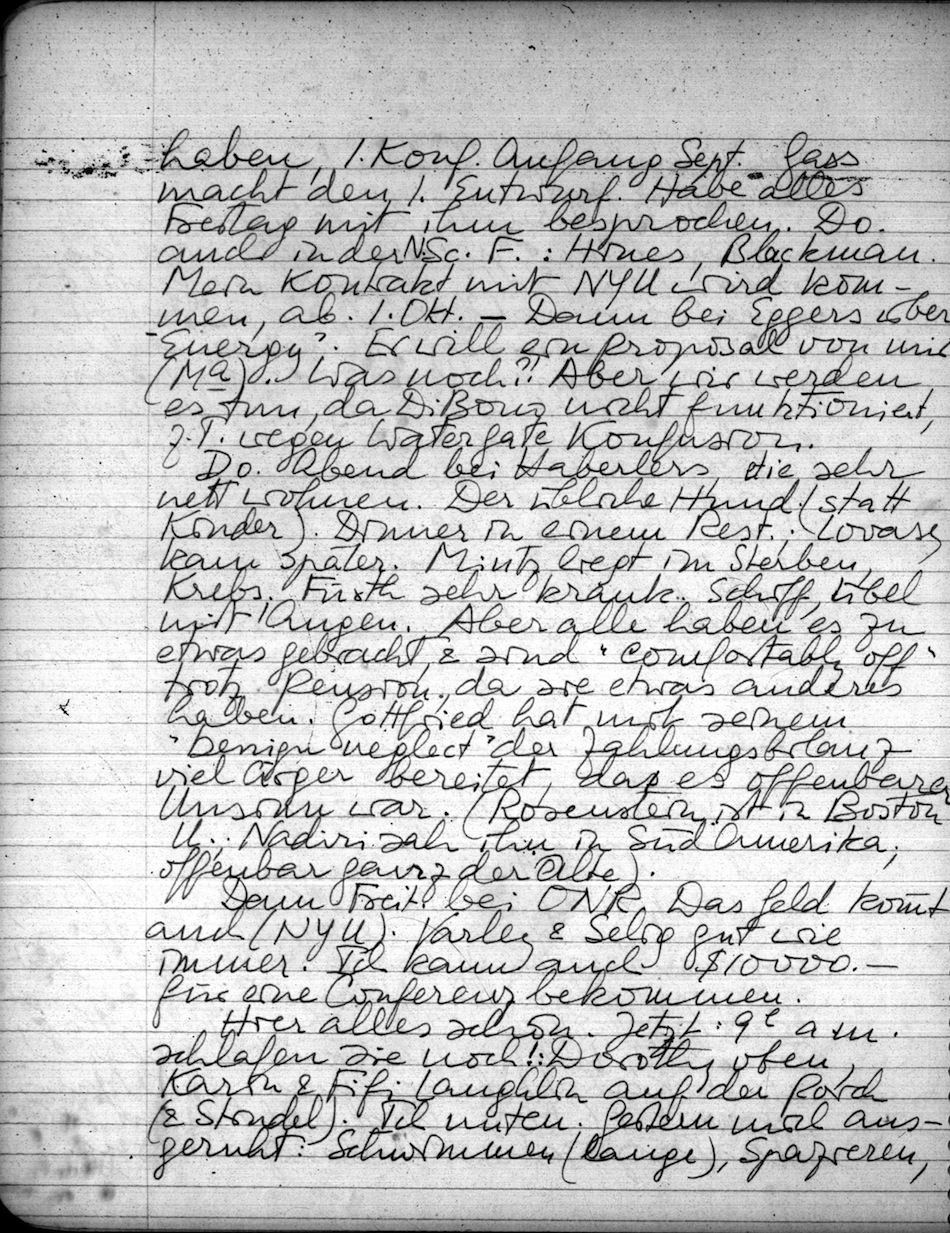 haben, 1. Konf. Anfang Sept. Gass
macht den 1. Entwurf. Habe alles
Freitag mit ihm besprochen. Do.
auch in der N.Sc. F. : Hines, Blackman.
Mein Kontrakt mit NYU wird kom-
men, ab. 1. Okt. — Dann bei Eggers über
"Energy". Er will ein proposal von mir
(Ma). Was noch?! Aber wir werden
es tun, da DiBona nicht funktioniert,
z.T. wegen Watergate Konfusion.
Do. Abend bei Haberlers, die sehr
nett wohnen. Der übliche Hund (statt
Kinder). Dinner in einem Rest.; Lovasy
kam später. Mintz liegt im Sterben,
Krebs. Fürth sehr krank. Schiff, übel
mit Augen. Aber alle haben es zu
etwas gebracht & sind "comfortably off"
trotz Pension, da sie etwas anderes
haben. Gottfried hat mit seinem
"benign neglect" der Zahlungsbilanz
viel Ärger bereitet, das es offenbarer
Unsinn war. (Rosenstein ist in Boston
U.; Nadiri sah ihn in Süd Amerika;
offenbar ganz der Alte).
Dann Freit. bei ONR. Das Geld komt
auch (NYU). Varley & Selig gut wie
immer. Ich kann auch $10000.—
für eine Conferenz bekommen.
Hier alles schön. Jetzt: 9h a.m.
schlafen sie noch!: Dorothy oben,
Karin & Fifi Laughlin auf der Porch
(& Strudel). Ich unten. Gestern mich aus-
geruht: Schwimmen (lange), Spazieren,